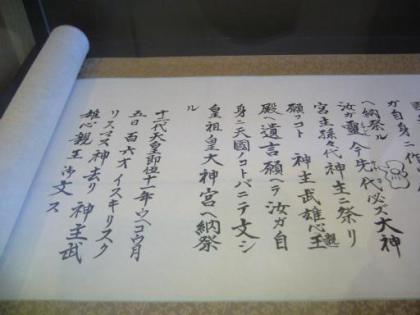 ガ自身ニ作
ヘ納祭ル
汝ガ靈今先代必ズ大神
宮主孫々代神主ニ祭リ
願ッコト 神主武雄心親王
殿ヘ遺言願ヘラ汝ガ自
身ニ天國ノコトバニテ文シ
皇祖ノ皇大神宮ヘ納祭
ル
十一代天皇即位十年ウコウ月
五日百六オイスキリスク
リスマス神去リ 神主武
雄心親王御文ス